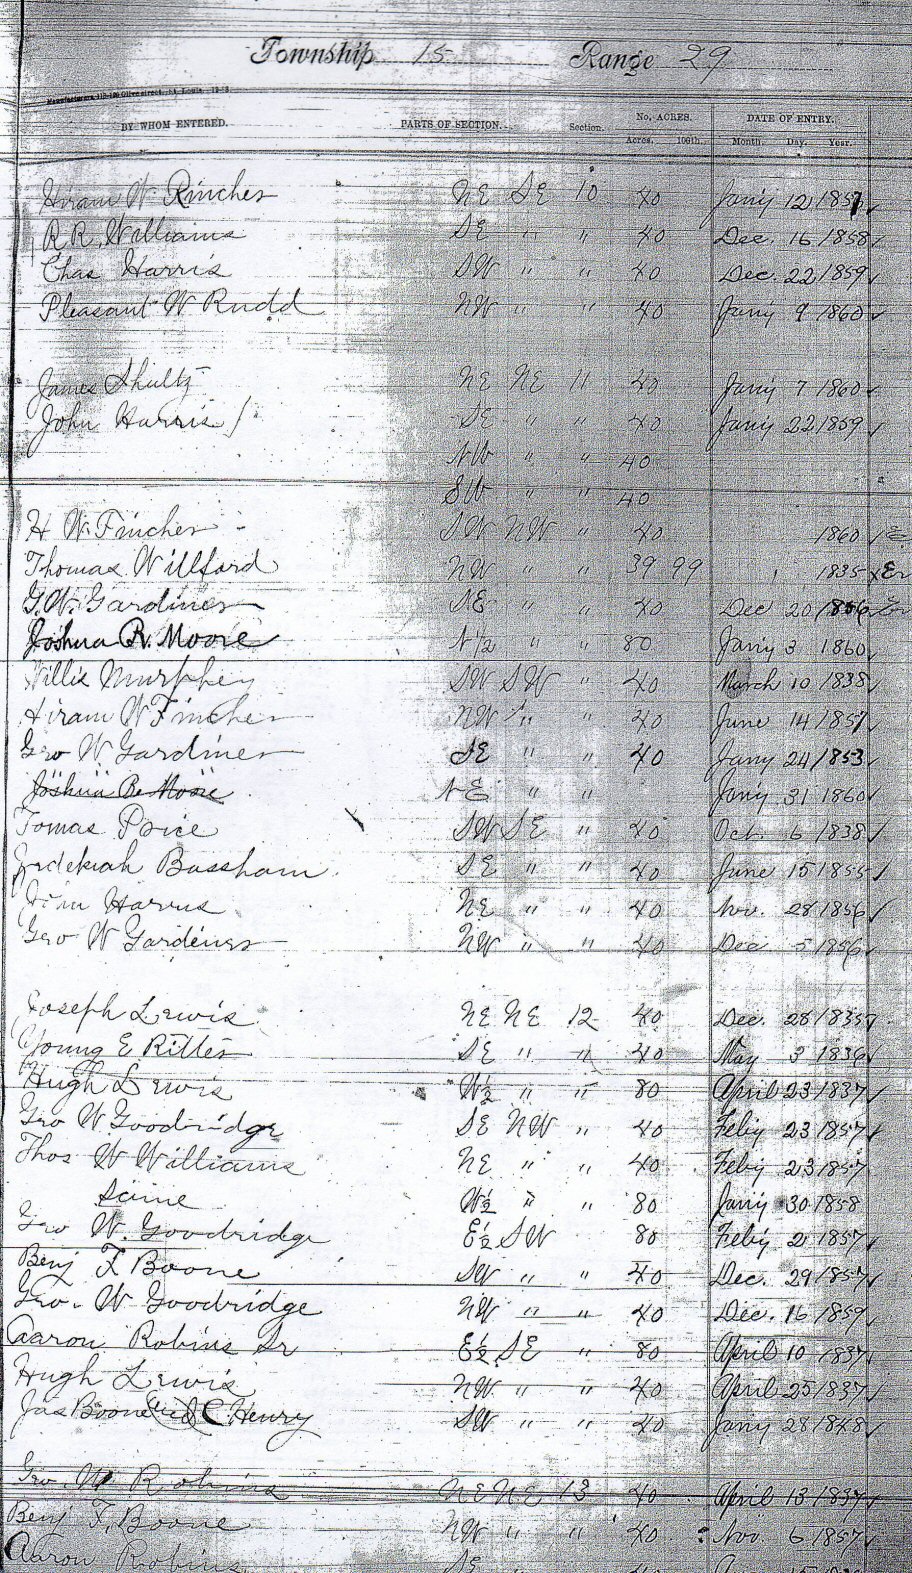 Township 15 Range 29
Manufacturers, Olive street, St. Louis,
BY WHOM ENTERED. PARTS OF SECTION. Section. No. ACRES. DATE OF ENTRY.
Acres. 100th. Month. Day. Year.
Hiram W Rincher NE SE 10 40 Jany 12 1857
R R Williams SE " " 40 Dec. 16 1858
Chas Harris SW " " 40 Dec. 22 1859
Pleasant W Rudd NW " " 40 Jany 9 1860
James Shultz NE NE 11 40 Jany 7 1860
John Harris SE " " 40 Jany 22 1859
NW " " 40
SW " " 40
H W. Fincher SW NW " 40 1860
Thomas Willford NW " " 39 99 1835
G.W. Gardiner SE " " 40 Dec 20 1856
Joshua R. Moore N 1/2 " " 80 Jany 3 1860
Willis Murphey SW SW " 40 March 10 1838
Hiram W Fincher NW " " 40 June 14 1857
Geo W Gardiner SE " " 40 Jany 24 1853
Joshua R Moore NE " " Jany 31 1860
Tomas Price SW SE " 40 Oct. 6 1838
Zedekiah Bassham SE " " 40 June 15 1855
Harris NE " " 40 Nov. 28 1856
Geo W Gardener NW " " 40 Dec 5 1856
Joseph Lewis NE NE 12 40 Dec. 28 1835
Young E Ritter SE " " 40 May 3 1836
Hugh Lewis W 1/2 " " 80 April 23 1837
Geo W Goodridge SE NW " 40 Feby 23 1857
Thos W Williams NE " " 40 Feby 23 1857
Same W 1/2 " " 80 Jany 30 1858
Geo W. Goodridge E 1/2 SW 80 Feby 2 1857
Benj F Boone SW " " 40 Dec. 29 1857
Geo. W Goodridge NW " " 40 Dec. 16 1859
Aaron Robins Sr E 1/2 SE " 80 April 10 1837
Hugh Lewis NW " " 40 April 25 1837
Jas Boone C Henry SW " " 40 Jany 28 1848
Geo. W Robins NE NE 13 40 April 13 1837
Benj F. Boone NW " " 40 Nov 6 1857
Aaron Robins SE